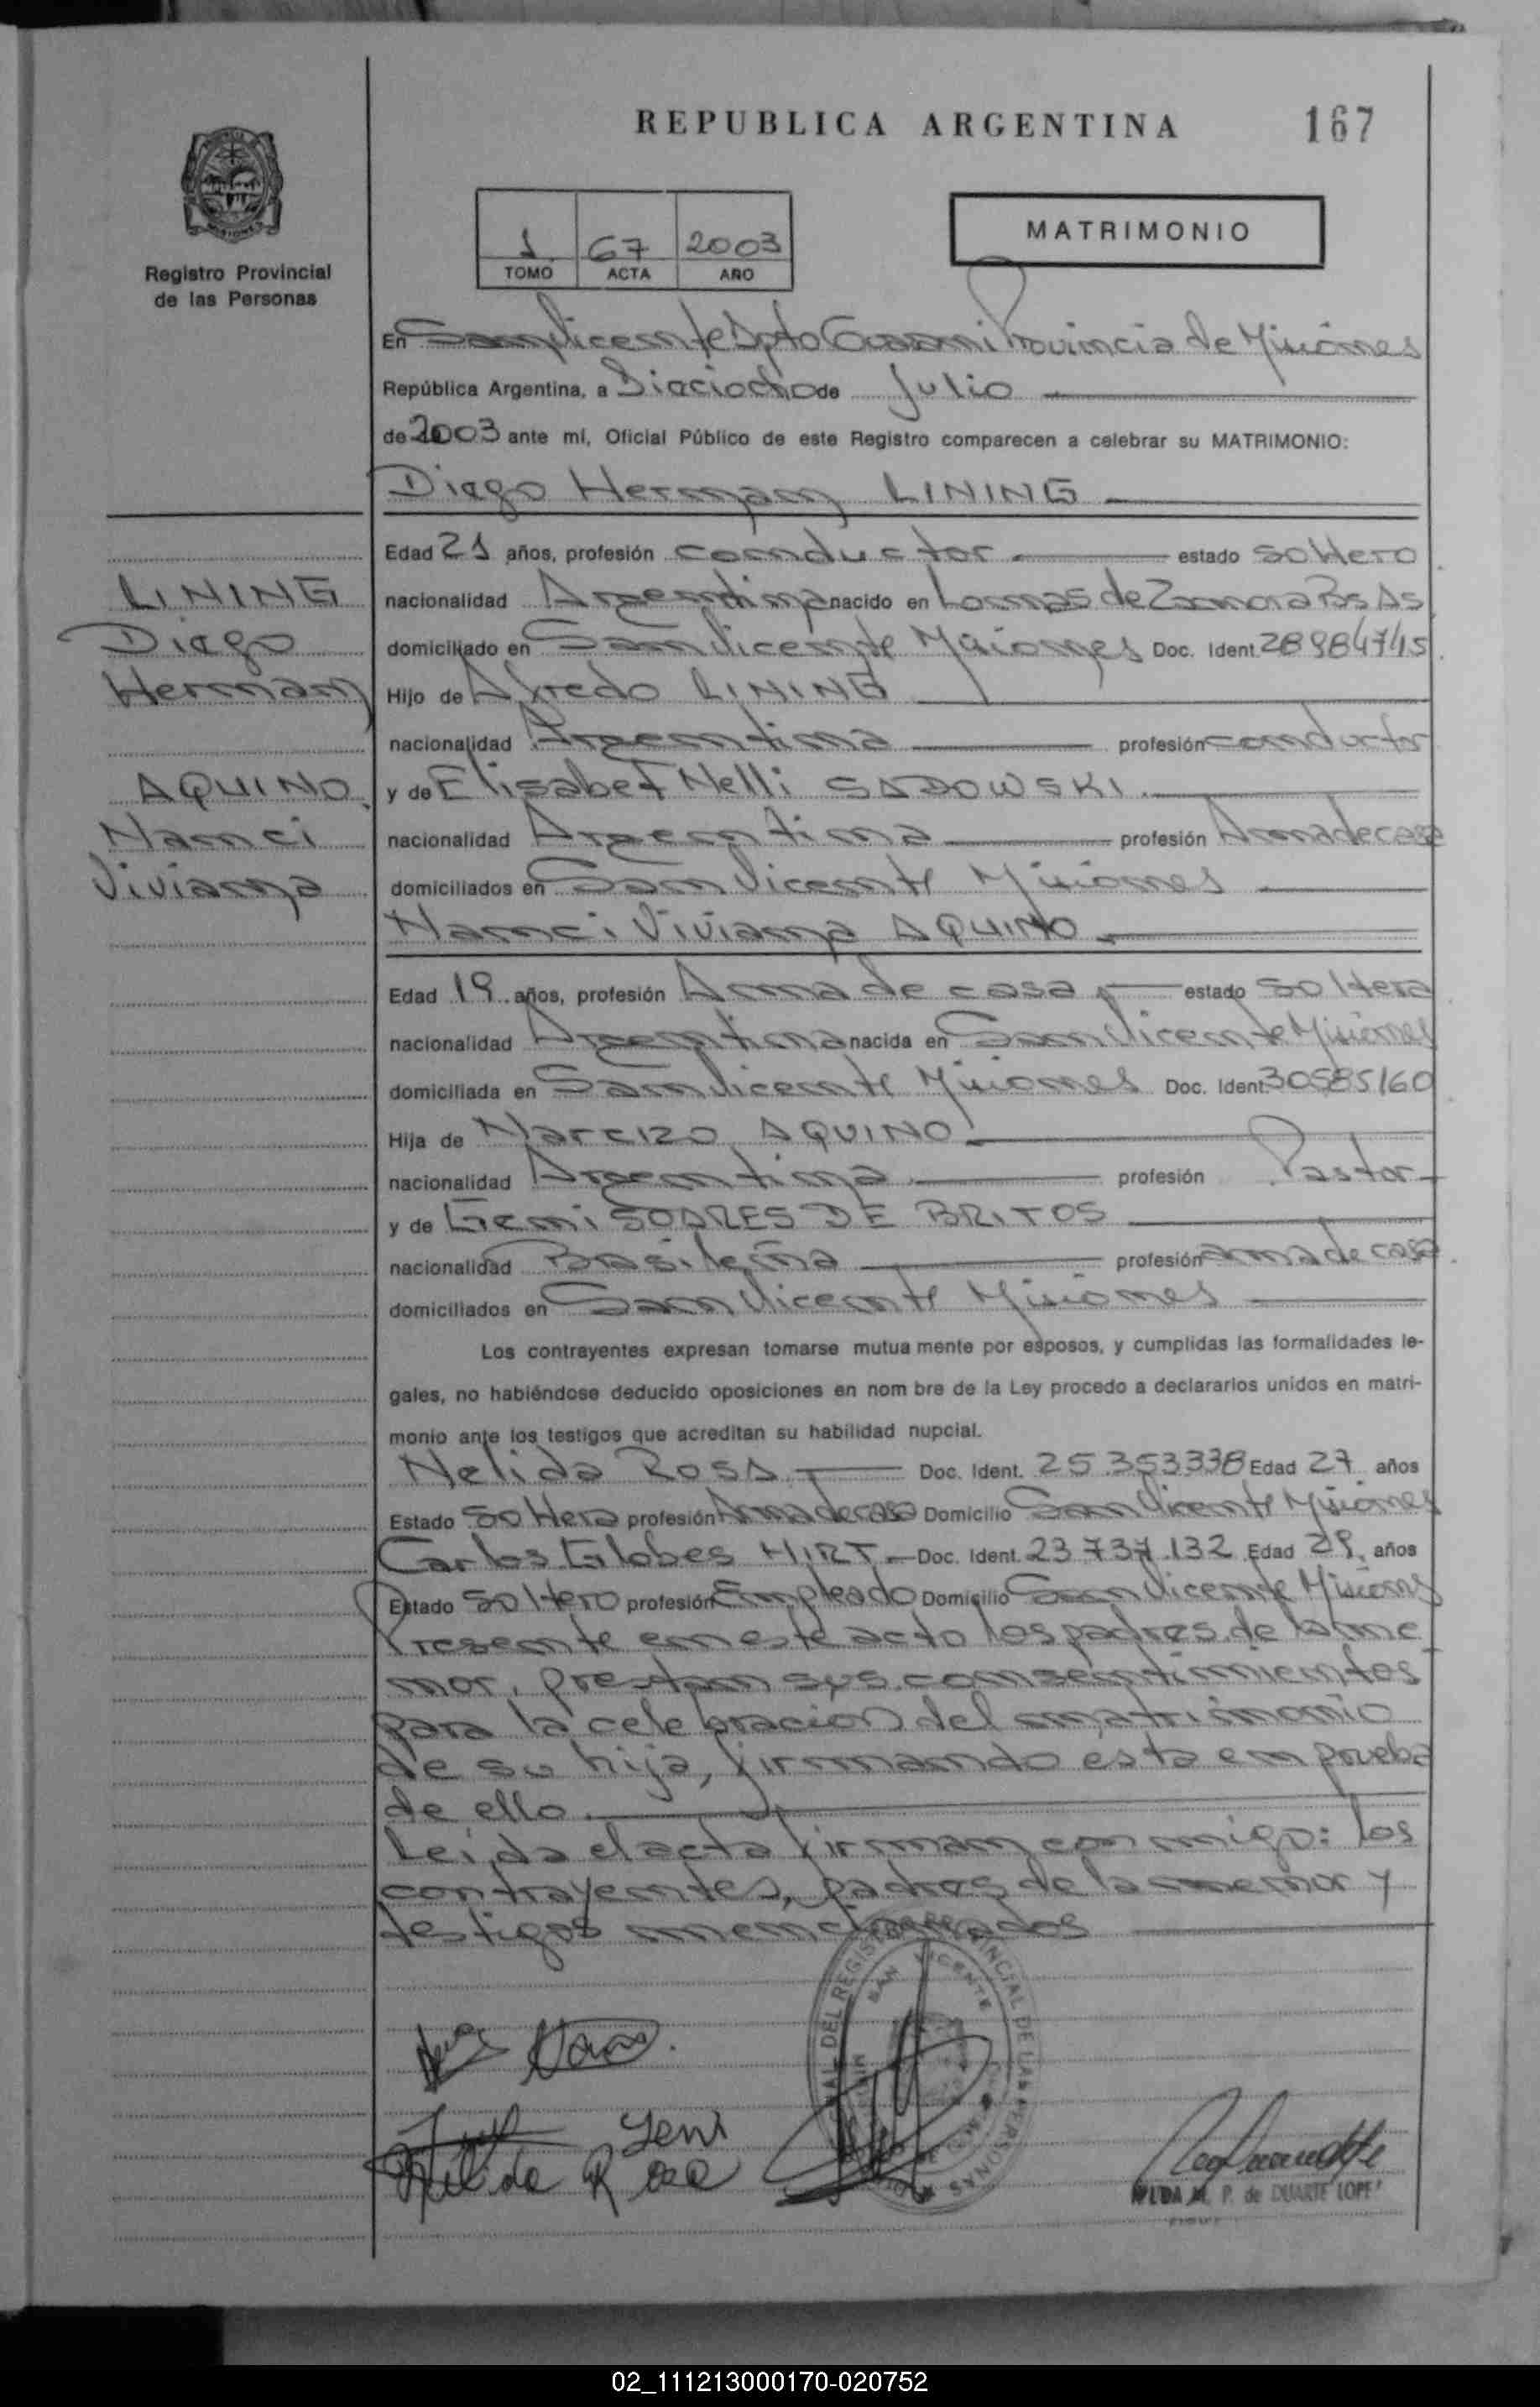 REPUBLICA ARGENTINA
167
Registro Provincial
de las Personas
1 67 2003
TOMO ACTA AÑO
MATRIMONIO
En San Vicente Dpto Guarani Provincia de Misiones
República Argentina, a Dieciocho de Julio
de 2003 ante mí, Oficial Público de este Registro comparecen a celebrar su MATRIMONIO:
Diego Hernan LINING
LINING
Diego
Hernan
AQUINO
Nanci
Viviana
Edad 21 años, profesión conductor estado soltero
nacionalidad Argentina nacido en Lomas de Zamora Bs As
domiciliado en San Vicente Misiones Doc. Ident. 28984745
Hijo de Alfredo LINING
nacionalidad Argentina profesión conductor
y de Elisabet Nelli SADOWSKI
nacionalidad Argentina profesión Ama de casa
domiciliados en San Vicente Misiones
Nanci Viviana AQUINO
Edad 19 años, profesión Ama de casa estado soltera
nacionalidad Argentina nacida en San Vicente Misiones
domiciliada en San Vicente Misiones Doc. Ident. 30585160
Hija de Narcizo AQUINO
nacionalidad Argentina profesión Pastor
y de Geni SOARES DE BRITOS
nacionalidad Brasileña profesión ama de casa
domiciliados en San Vicente Misiones
Los contrayentes expresan tomarse mutua mente por esposos, y cumplidas las formalidades le-
gales, no habiéndose deducido oposiciones en nom bre de la Ley procedo a declararlos unidos en matri-
monio ante los testigos que acreditan su habilidad nupcial.
Nelida ROSA Doc. Ident. 25.353.338 Edad 27 años
Estado soltera profesión Ama de casa Domicilio San Vicente Misiones
Carlos Globes HIRT Doc. Ident. 23.737.132 Edad 29 años
Estado soltero profesión Empleado Domicilio San Vicente Misiones
Presente en este acto los padres de la me
nor, prestan sus consentimientos
para la celebracion del matrimonio
de su hija, firmando esta en prueba
de ello.
Leida el acta firman conmigo: los
contrayentes, padres de la menor y
testigos mencionados
SAN VICENTE
Jeni
Nelida Rosa
M. P. de DUARTE LOPE
02_111213000170-020752